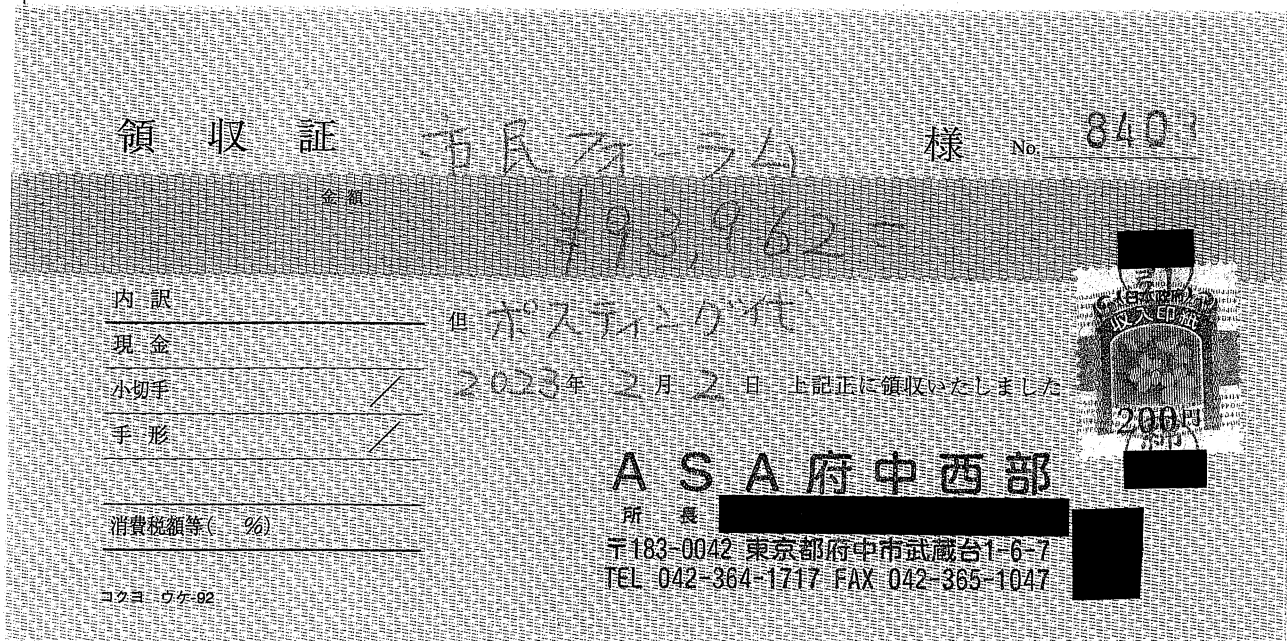 領収証 市民フォーラム 様 No. 8403
金額 ¥93,962-
内訳
但 ポスティング代
現金
小切手
2023年 2月 2日 上記正に領収いたしました
手形
消費税額等( %)
日本政府
収入印紙
200円
ASA府中西部
所長
〒183-0042 東京都府中市武蔵台1-6-7
TEL 042-364-1717 FAX 042-365-1047
コクヨ ウケ-92